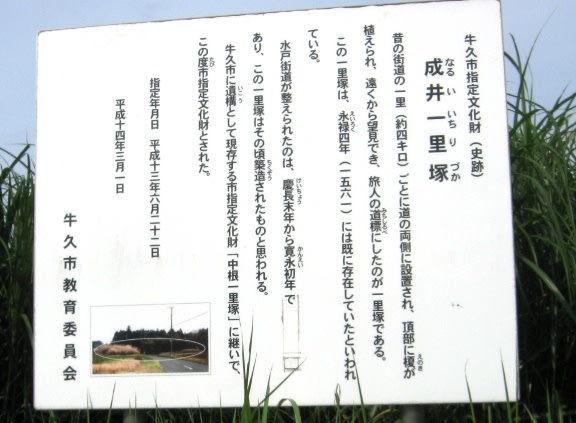 牛久市指定文化財（史跡）
成井一里塚
なるいいちりづか
昔の街道の一里（約四キロ）ごとに道の両側に設置され、頂部に榎が
えのき
植えられ、遠くから望見でき、旅人の道標にしたのが一里塚である。
みちしるべ
この一里塚は、永禄四年（一五六一）には既に存在していたといわれ
えいろく
ている。
水戸街道が整えられたのは、慶長末年から寛永初年で
けいちょう
かんえい
あり、この一里塚はその頃築造されたものと思われる。
ちくぞう
牛久市に遺構として現存する市指定文化財「中根一里塚」に継いで、
いこう
この度市指定文化財とされた。
たび
指定年月日　平成十三年六月二十二日
平成十四年三月一日
牛久市教育委員会